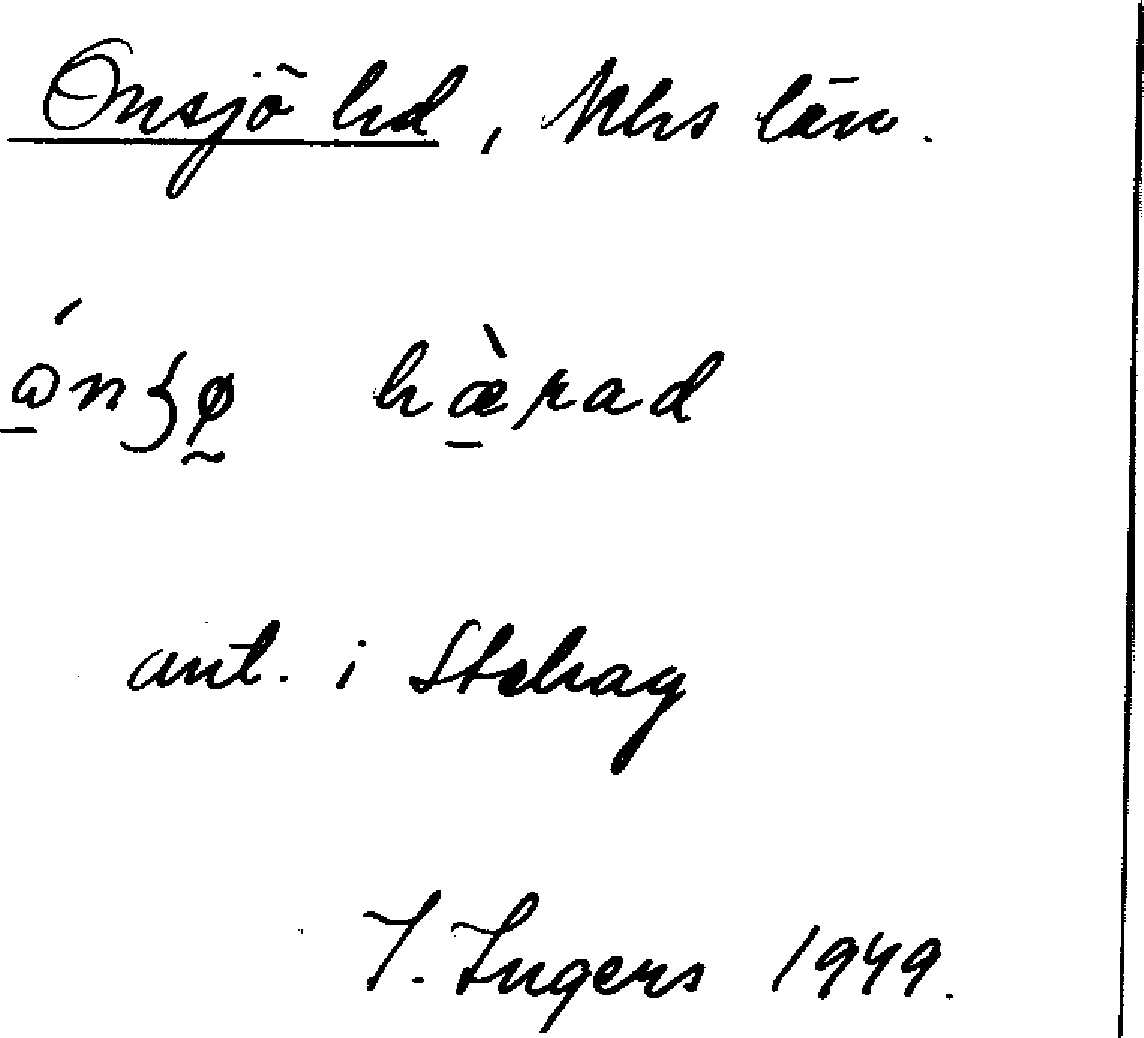 Onsjö hd, Mhs län.
ónʒø hæ̀rad
ant. i Stehag
I. Ingers 1949.